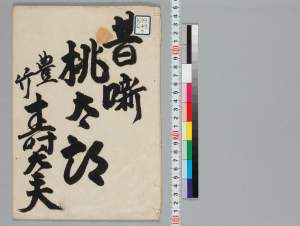 昔噺
桃太郎
豊竹寿太夫